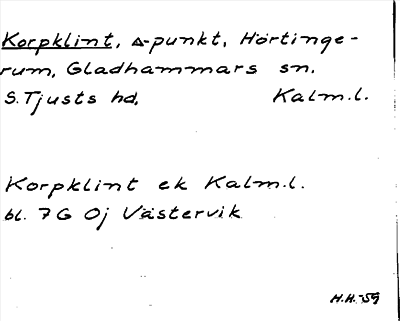 Korpklint, △-punkt, Hörtinge-
rum, Gladhammars sn.
S. Tjusts hd. Kalm.l.
Korpklint ek Kalm.l.
bl. 7G Oj Västervik
H.H.-59